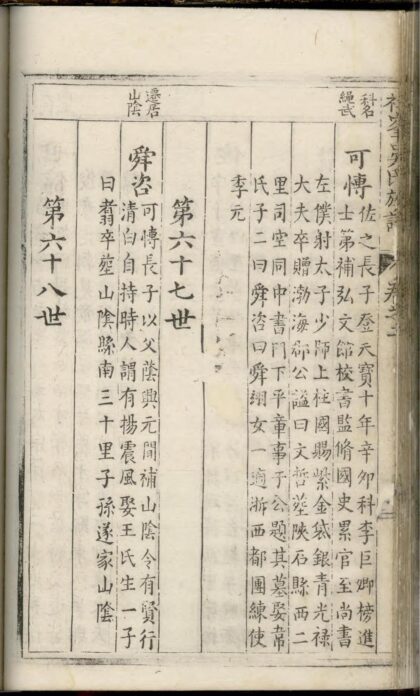 氏族譜
科名
繩武
可愽 佐之長子登天寶十年辛卯科李巨卿榜進
士第補弘文館校書監脩國史累官至尚書
左僕射太子少師上柱國賜紫金袋銀青光禄
大夫卒贈渤海郡公謚曰文哲塟陝石縣西二
里司空同中書門下平章事于公題其墓娶韋
氏子二曰舜咨曰舜翊女一適浙西都團練使
李元
第六十七世
遷居
山陰
舜咨 可愽長子以父蔭興元間補山陰令有賢行
清白自持時人謂有揚震風娶王氏生一子
曰翥卒塟山陰縣南三十里子孫遂家山陰
第六十八世